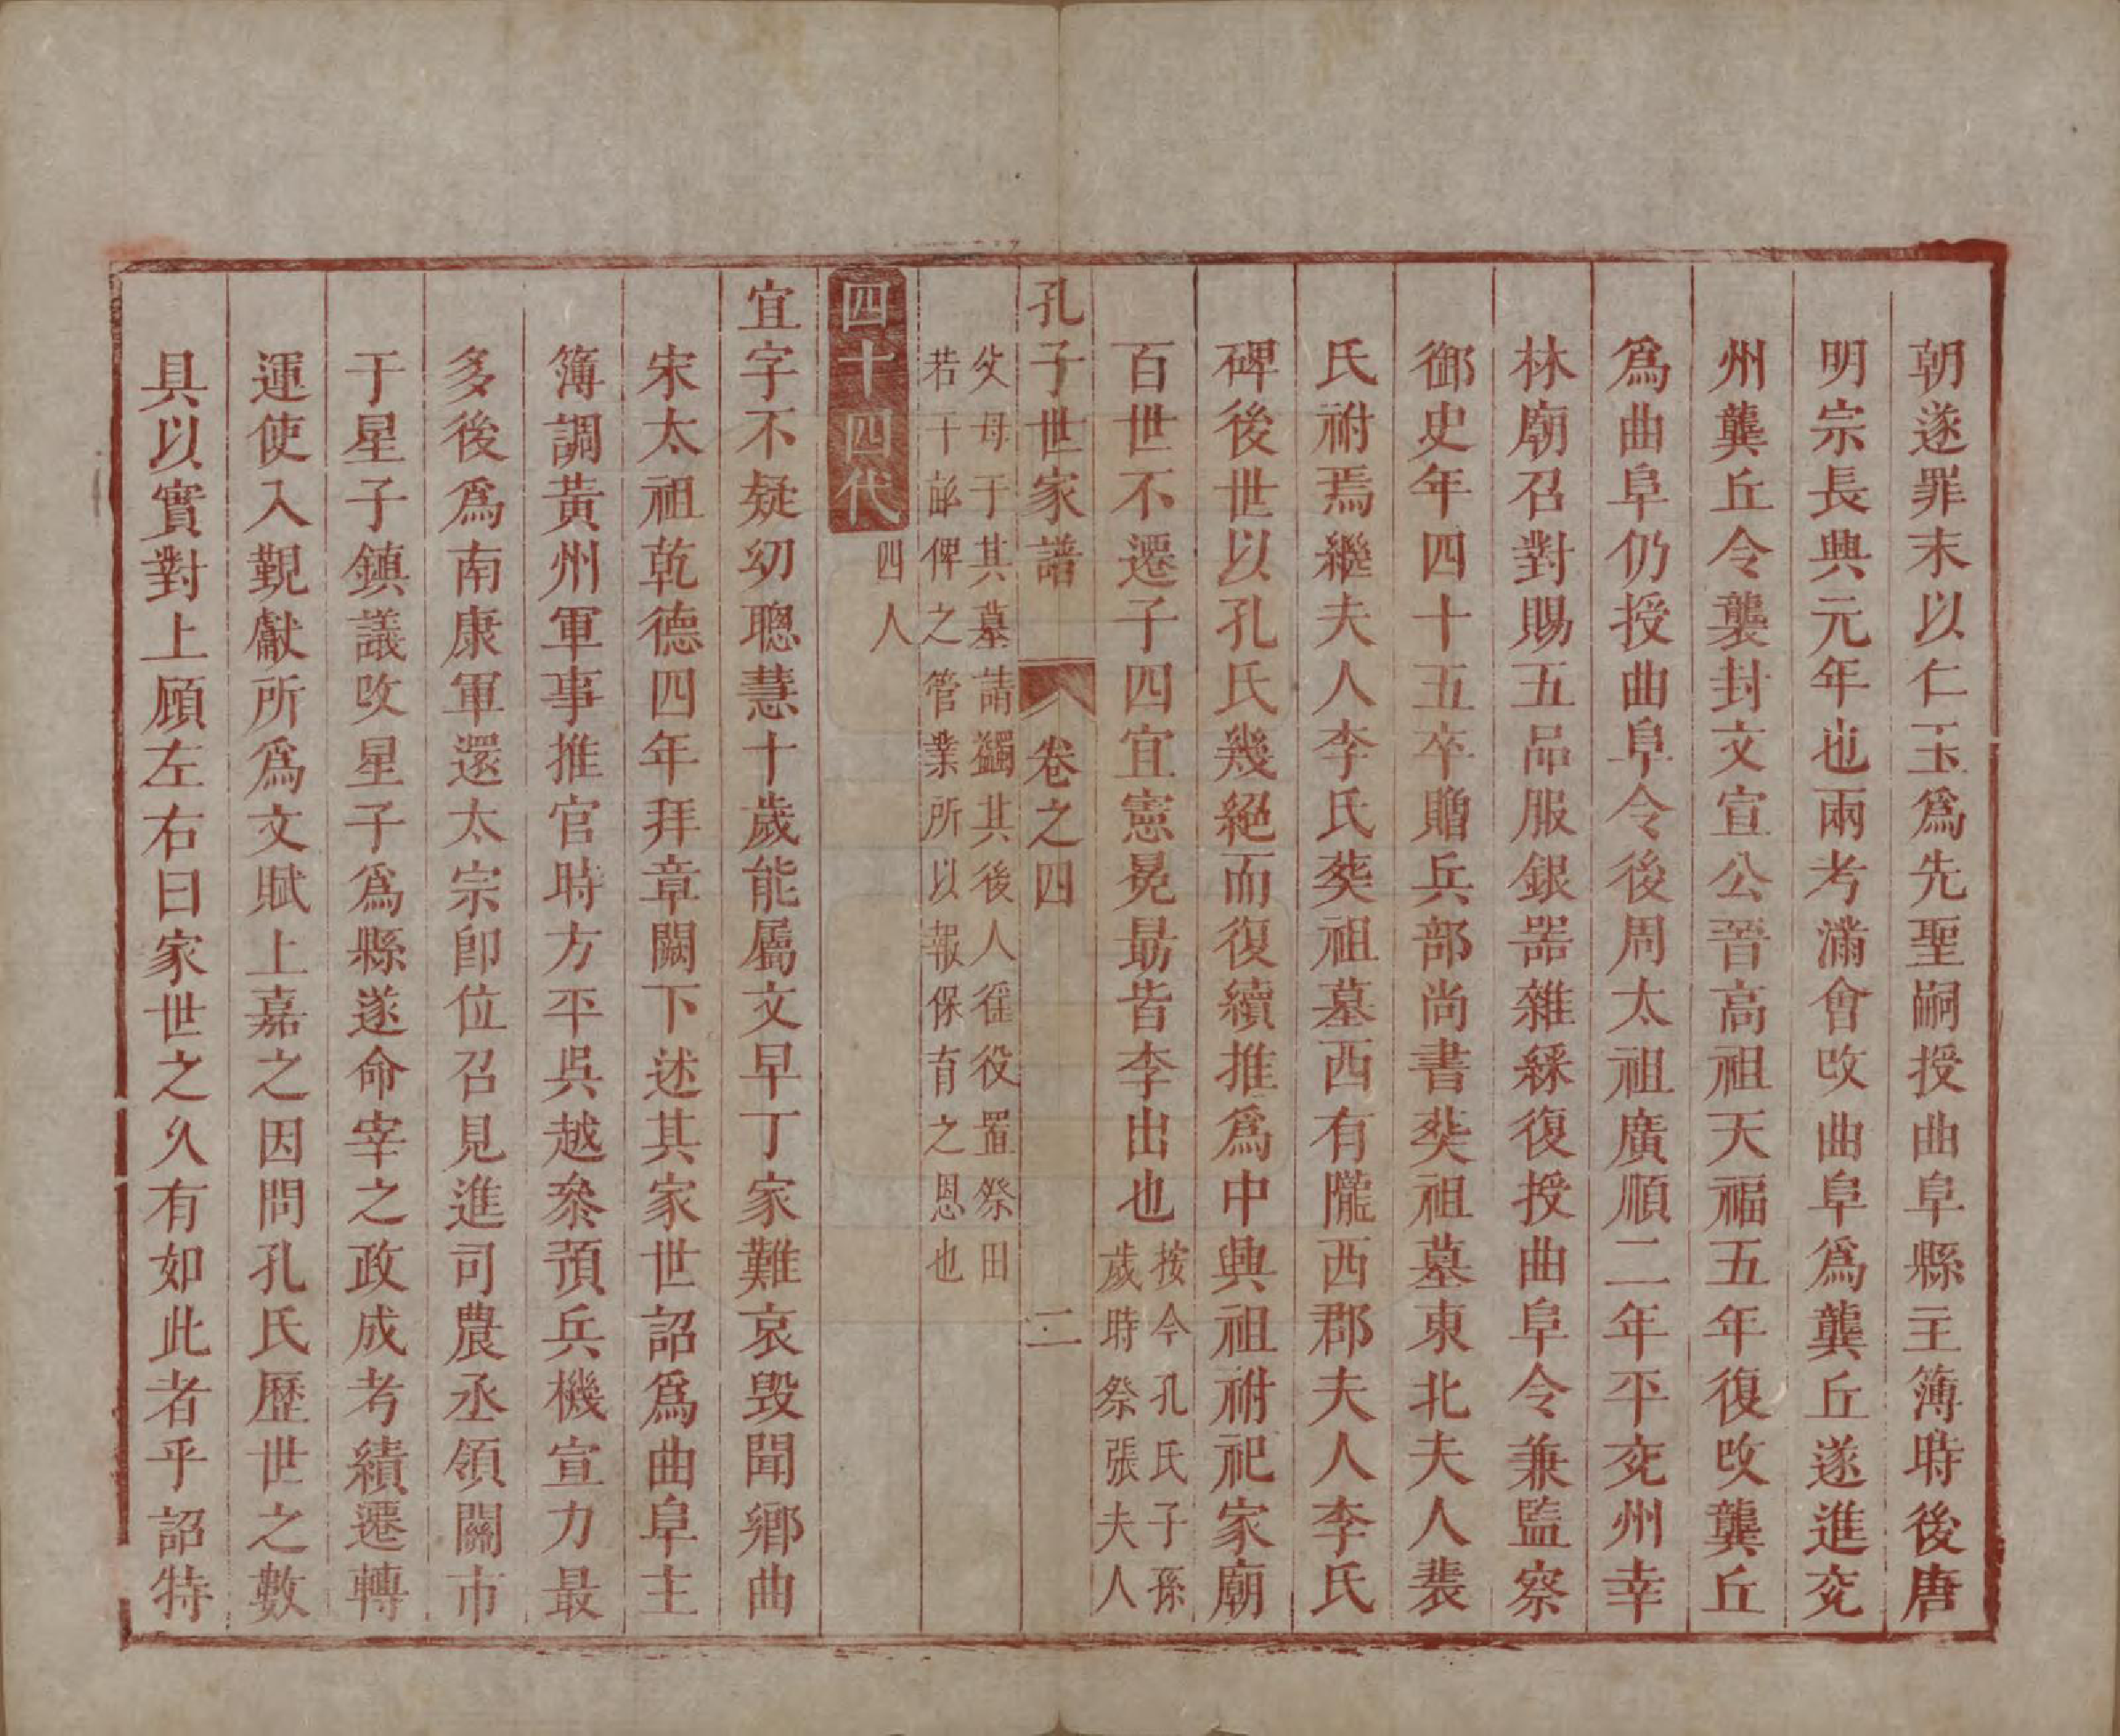 朝遂罪末以仁玉爲先聖嗣授曲阜縣主簿時後唐
明宗長興元年也兩考滿會攺曲阜爲龔丘遂進兖
州龔丘令襲封文宣公晉高祖天福五年復攺龔丘
爲曲阜仍授曲阜令後周太祖廣順二年平兖州幸
林廟召對賜五品服銀器雜綵復授曲阜令兼監察
御史年四十五卒贈兵部尚書葬祖墓東北夫人裴
氏祔焉繼夫人李氏葬祖墓西有隴西郡夫人李氏
碑後世以孔氏幾絕而復續推爲中興祖祔祀家廟
百世不遷子四宜憲冕勗皆李出也按今孔氏子孫
歲時祭張夫人
孔子世家譜 卷之四 二
父母于其墓請蠲其後人徭役置祭田
若干畝俾之管業所以報保育之恩也
四十四代四人
宜字不疑幼聰慧十歲能屬文早丁家難哀毀聞鄉曲
宋太祖乾德四年拜章闕下述其家世詔爲曲阜主
簿調黃州軍事推官時方平吳越叅預兵機宣力最
多後爲南康軍還太宗卽位召見進司農丞領關市
于星子鎮議攺星子爲縣遂命宰之政成考績遷轉
運使入覲獻所爲文賦上嘉之因問孔氏歷世之數
具以實對上顧左右曰家世之久有如此者乎詔特